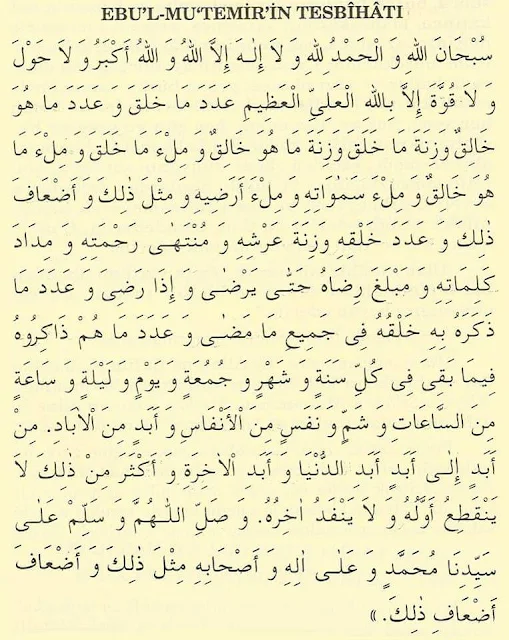 EBU'L-MU'TEMİR'İN TESBÎHÂTI
سُبْحَانَ اللهِ وَ الْحَمْدُ لِلهِ وَ لَا إِلٰهَ إِلَّا اللهُ وَ اللهُ أَكْبَرُ وَ لَا حَوْلَ
وَ لَا قُوَّةَ إِلَّا بِاللهِ الْعَلِىِّ الْعَظِيمِ عَدَدَ مَا خَلَقَ وَ عَدَدَ مَا هُوَ
خَالِقٌ وَ زِنَةَ مَا خَلَقَ وَ زِنَةَ مَا هُوَ خَالِقٌ وَ مِلْءَ مَا خَلَقَ وَ مِلْءَ مَا
هُوَ خَالِقٌ وَ مِلْءَ سَمٰوَاتِهِ وَ مِلْءَ أَرَضِيهِ وَ مِثْلَ ذٰلِكَ وَ أَضْعَافَ
ذٰلِكَ وَ عَدَدَ خَلْقِهِ وَ زِنَةَ عَرْشِهِ وَ مُنْتَهٰى رَحْمَتِهِ وَ مِدَادَ
كَلِمَاتِهِ وَ مَبْلَغَ رِضَاهُ حَتّٰى يَرْضٰى وَ إِذَا رَضِىَ وَ عَدَدَ مَا
ذَكَرَهُ بِهِ خَلْقُهُ فِى جَمِيعِ مَا مَضٰى وَ عَدَدَ مَا هُمْ ذَاكِرُوهُ
فِيمَا بَقِىَ فِى كُلِّ سَنَةٍ وَ شَهْرٍ وَ جُمُعَةٍ وَ يَوْمٍ وَ لَيْلَةٍ وَ سَاعَةٍ
مِنَ السَّاعَاتِ وَ شَمٍّ وَ نَفَسٍ مِنَ الْأَنْفَاسِ وَ أَبَدٍ مِنَ الْاٰبَادِ. مِنْ
أَبَدٍ إِلٰى أَبَدٍ أَبَدِ الدُّنْيَا وَ أَبَدِ الْاٰخِرَةِ وَ أَكْثَرَ مِنْ ذٰلِكَ لَا
يَنْقَطِعُ أَوَّلُهُ وَ لَا يَنْفَدُ اٰخِرُهُ. وَ صَلِّ اللّٰهُمَّ وَ سَلِّمْ عَلٰى
سَيِّدِنَا مُحَمَّدٍ وَ عَلٰى اٰلِهِ وَ أَصْحَابِهِ مِثْلَ ذٰلِكَ وَ أَضْعَافَ
أَضْعَافِ ذٰلِكَ. »